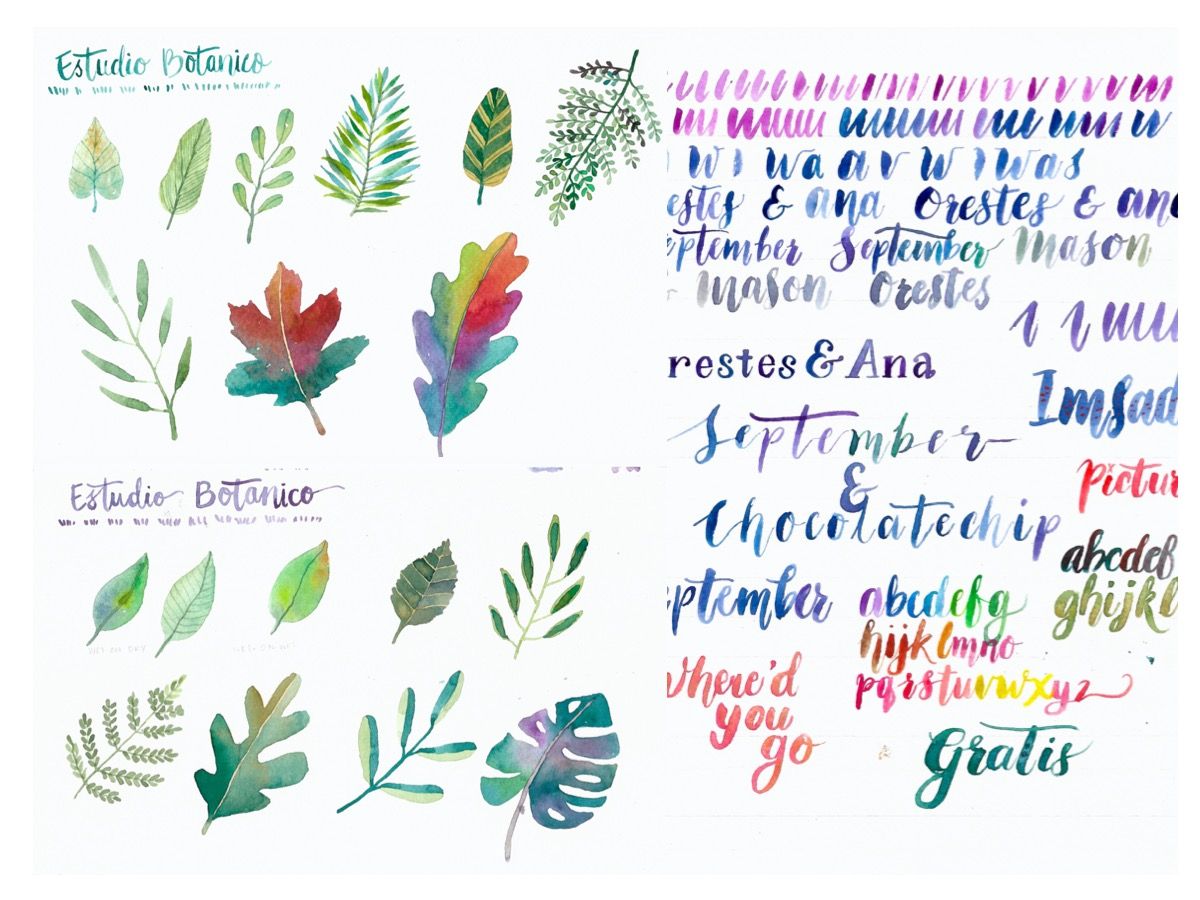 Estudio Botanico
Estudio Botanico
WET ON DRY
WET ON WET
w i wa a v w i was
estes & ana Orestes & ana
eptember September Mason
mason Orestes
restes & Ana
Imsad
September
&
Chocolatechip
Pictur
ptember
abcdefg
hijklmno
pqrstuvwxyz
abcdef
ghijkl
where'd
you
go
Gratis